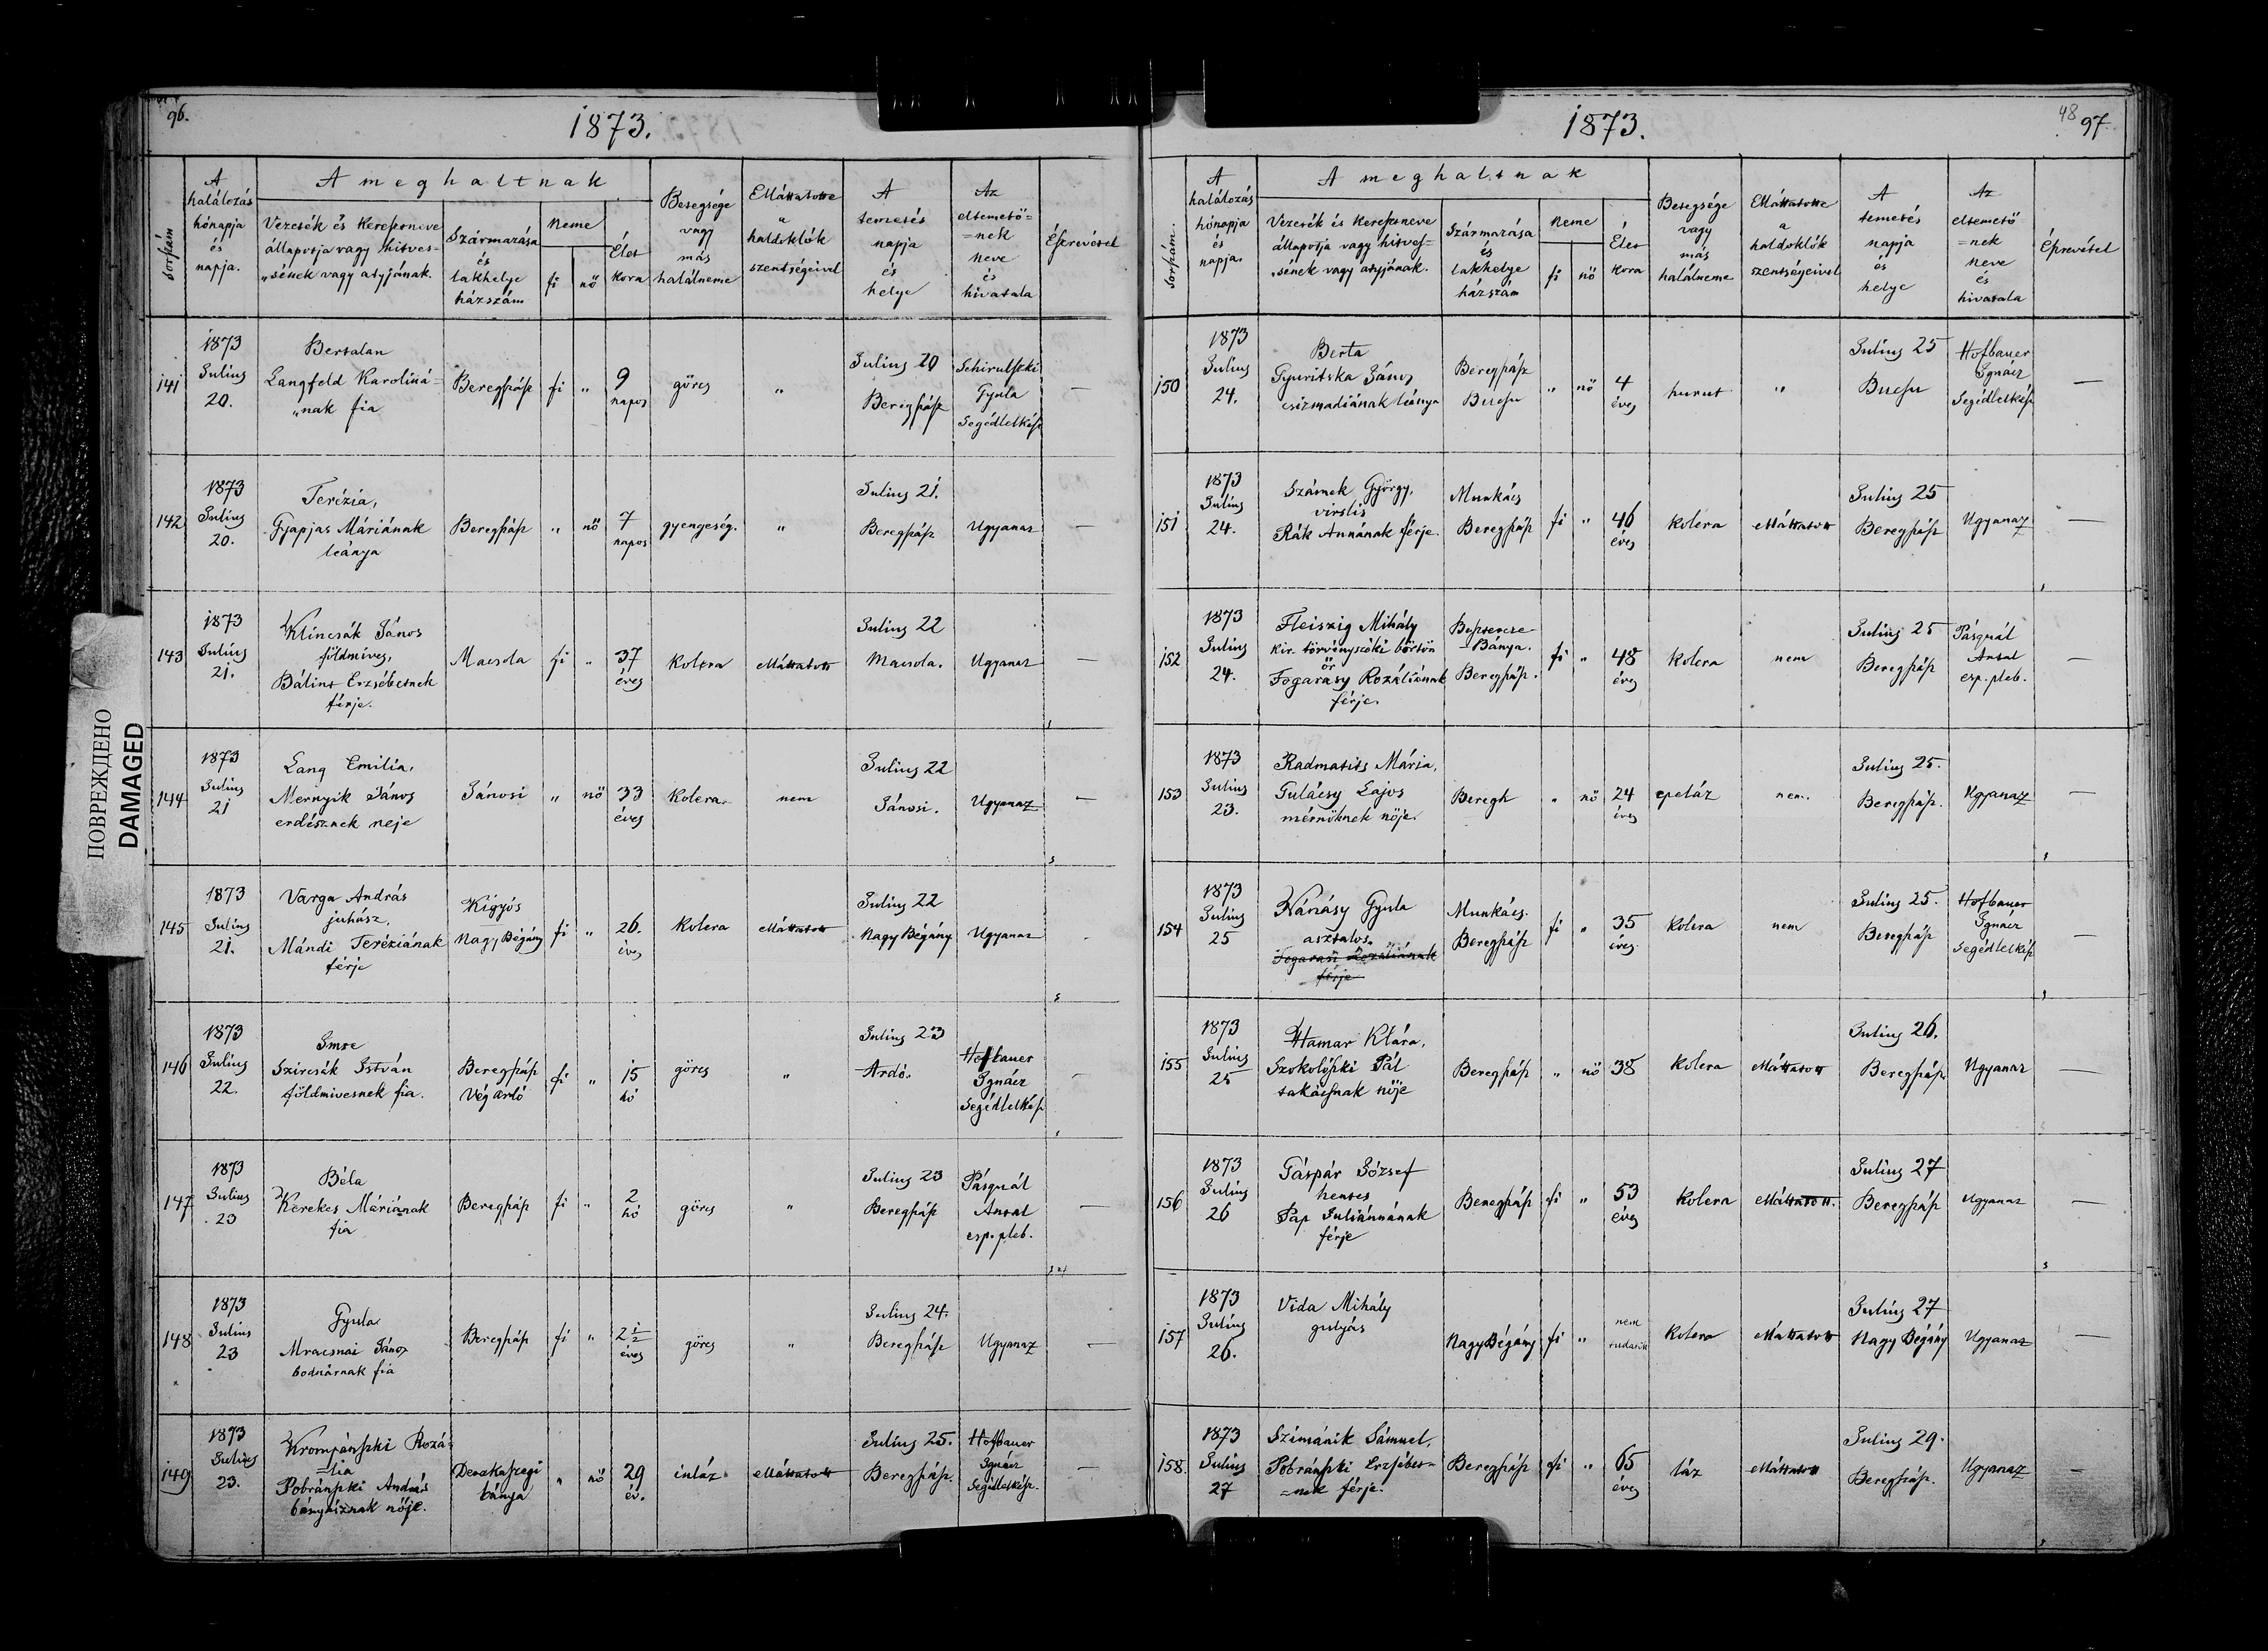 96.
1873.
sorszám
A halálozás hónapja és napja.
A meghaltnak
Vezeték és Keresztneve állapotja vagy hitves-„sének vagy atyjának.
Származása és lakhelye házszám
Neme
fi
nő
Élet kora
Betegsége vagy más halálneme
Ellátattotte a haldoklók szentségeivel
A temetés napja és helye
Az eltemető-=nek neve és hivatala
Észrevétel
141
1873 Julius 20.
Bertalan
Langfeld Karoliná-
„nak fia
Beregszász
fi
"
9 napos
görcs
"
Julius 20 Beregszász
Schirulszki Gyula Segédlelkész
—
142
1873 Julius 20.
Terézia,
Gyapjas Máriának
leánya
Beregszász
"
nő
7 napos
gyengeség.
"
Julius 21. Beregszász
Ugyanaz
—
143
1873 Julius 21.
Klincsák János
földmíves,
Bálint Erzsébetnek
férje.
Macsola
fi
"
37 éves
Kolera
elláttatott
Julius 22 Macsola.
Ugyanaz
—
144
1873 Julius 21
Lang Emilia,
Mernyik János
erdésznek neje
Jánosi
"
nő
33 éves
Kolera
nem
Julius 22 Jánosi.
Ugyanaz
—
145
1873 Julius 21.
Varga András
juhász,
Mándi Teréziának
férje
Kigyós
Nagy Bégány
fi
"
26. éves
Kolera
elláttatott
Julius 22 Nagy Bégány
Ugyanaz
-
146
1873 Julius 22.
Imre
Szircsák István
földmivesnek fia.
Beregszász
Végardó
fi
"
15 hó
görcs
"
Julius 23 Ardó.
Hofbauer Ignácz Segédlelkész
—
147
1873 Julius 23
Béla
Kerekes Máriának
fia
Beregszász
fi
"
2 hó
görcs
"
Julius 23 Beregszász
Pásquál Antal esp. pleb.
—
148
1873 Julius 23
Gyula
Mracsnai János
bodnárnak fia
Beregszász
fi
"
2 1/2 éves
görcs
"
Julius 24. Beregszász
Ugyanaz
—
149
1873 Julius 23.
Krompánszki Rozá-
=lia
Pobránszki András
bányásznak nője.
Derekaszegi
bánya
"
nő
29 év.
inláz
elláttatott
Julius 25. Beregszász.
Hofbauer Ignácz Segédlelkész.
—
ПОВРЕЖДЕНО
DAMAGED
1873.
48
97.
sorszám.
A halálozás hónapja és napja.
A meghaltnak
Vezeték és Keresztneve állapotja vagy hitves-„sének vagy atyjának.
Származása és lakhelye házszám
Neme
fi
nő
Élet kora
Betegsége vagy más halálneme
Ellátattotte a haldoklók szentségeivel
A temetés napja és helye
Az eltemető =nek neve és hivatala
Észrevétel
150
1873 Julius 24.
Berta
Gyuritska János
csizmadiának leánya
Beregszász
Bucsu
"
nő
4 éves
hurut
"
Julius 25 Bucsu
Hofbauer Ignácz Segédlelkész
—
151
1873 Julius 24.
Számek György,
virslis
Rák Annának férje.
Munkács
Beregszász
fi
"
46 éves
Kolera
elláttatott
Julius 25 Beregszász
Ugyanaz
—
152
1873 Julius 24.
Fleiszig Mihály
kir. törvényszéki börtön
őr
Fogarasy Rozáliának
férje.
Besztercze
Bánya.
Beregszász.
fi
"
48 éves
Kolera
nem
Julius 25 Beregszász
Pásquál Antal esp. pleb.
—
153
1873 Julius 23.
Radmatits Mária,
Tulácsy Lajos
mérnöknek nője.
Beregh
"
nő
24 éves
epeláz
nem.
Julius 25. Beregszász.
Ugyanaz
—
154
1873 Julius 25
Nánásy Gyula
asztalos.
Fogarasi Rozáliának
férje
Munkács.
Beregszász
fi
"
35 éves.
Kolera
nem
Julius 25. Beregszász
Hofbauer Ignácz Segédlelkész
—
155
1873 Julius 25
Hamar Klára,
Szokolószki Pál
takácsnak nője
Beregszász
"
nő
38
Kolera
elláttatott
Julius 26. Beregszász
Ugyanaz
—
156
1873 Julius 26
Gáspár József
hentes
Pap Juliánnának
férje
Beregszász
fi
"
53 éves
Kolera
elláttatott.
Julius 27 Beregszász
Ugyanaz
—
157
1873 Julius 26.
Vida Mihály
gulyás
Nagy Bégány
fi
"
nem tudatik
Kolera
elláttatott
Julius 27 Nagy Bégány
Ugyanaz
—
158.
1873 Julius 27
Szimánik Sámuel,
Pobránszki Erzsébet-
=nek férje.
Beregszász
fi
"
65 éves
láz
elláttatott
Julius 29. Beregszász.
Ugyanaz
—